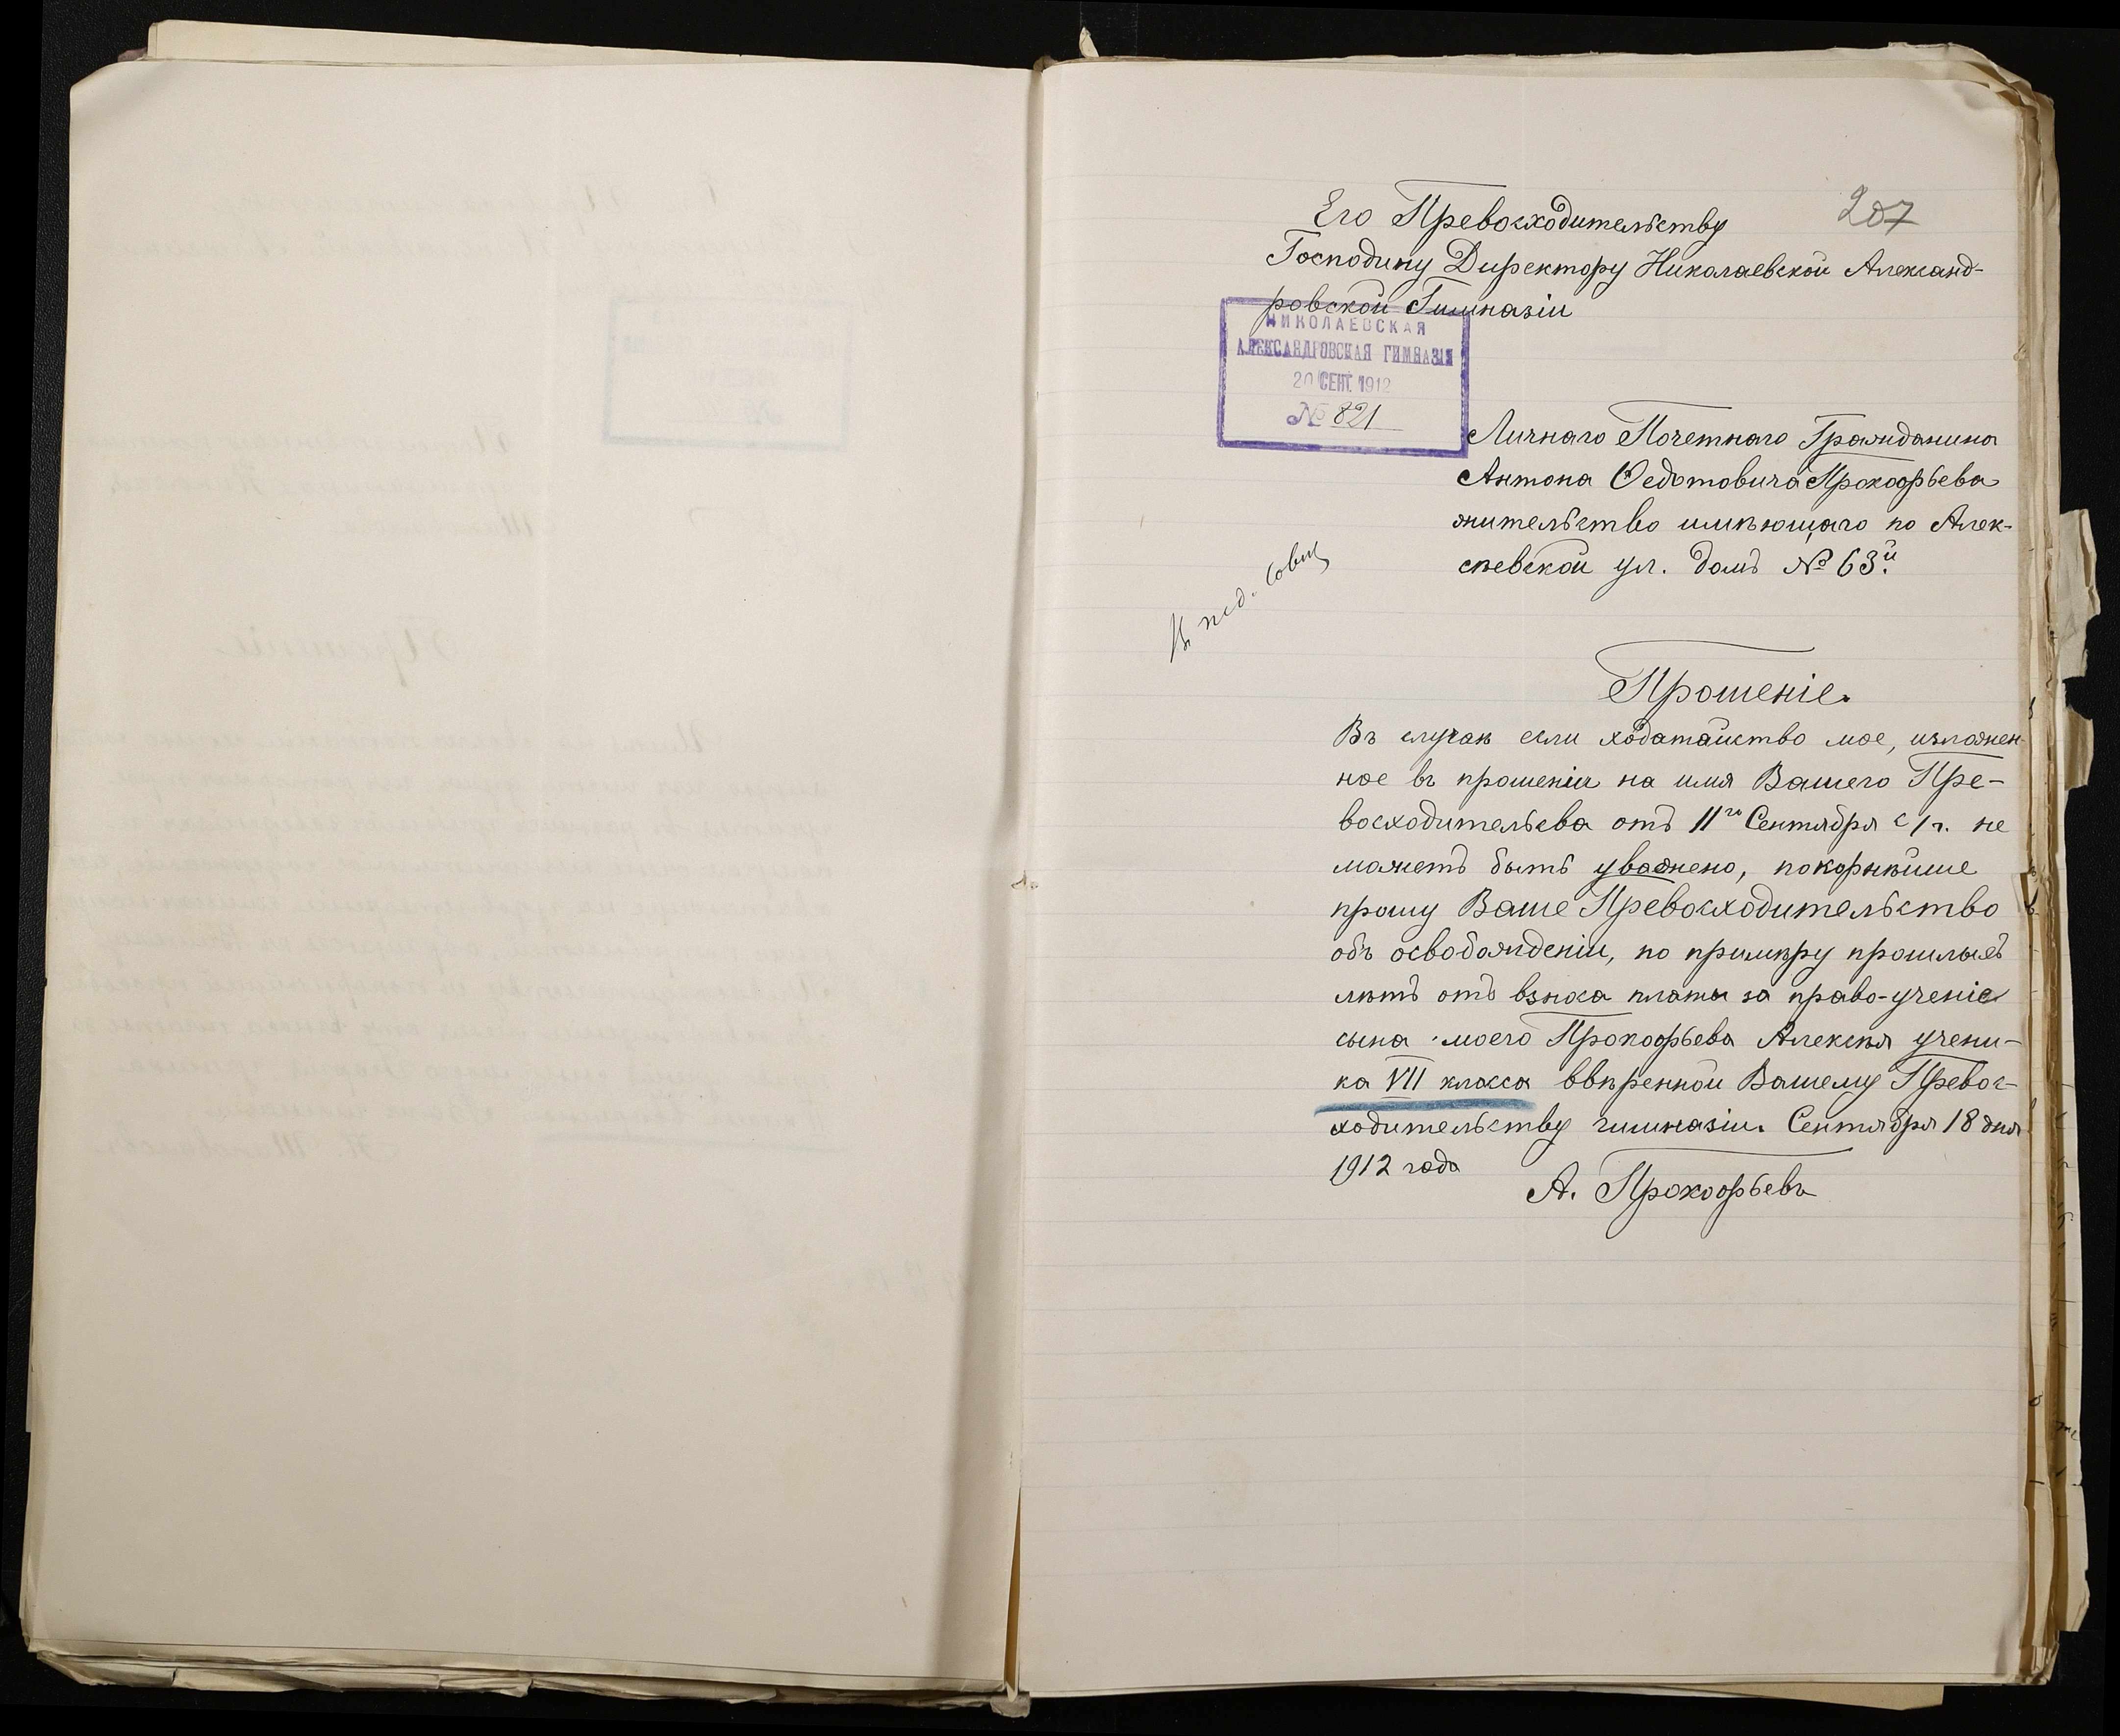 207
Его Превосходительству
Господину Директору Николаевской Александ-
ровской Гимназіи
НИКОЛАЕВСКАЯ
АЛЕКСАНДРОВСКАЯ ГИМНАЗІЯ
20 СЕНТ. 1912
№ 821
Личнаго Почетнаго Гражданина
Антона Ѳедотовича Прокофьева
жительство имѣющаго по Алек-
сѣевской ул. домъ № 63й.
В пед. совѣ
Прошеніе.
Въ случаѣ если ходатайство мое, изложен-
ное въ прошеніи на имя Вашего Пре-
восходительсва отъ 11го Сентября с/г. не
можетъ быть уважено, покорнѣйше
прошу Ваше Превосходительство
объ освобожденіи, по примѣру прошлыхъ
лѣтъ отъ взноса платы за право-ученіе
сына моего Прокофьева Алексѣя учени-
ка VII класса ввѣренной Вашему Превос-
ходительству гимназіи. Сентября 18 дня
1912 года
А. Прокофьевъ